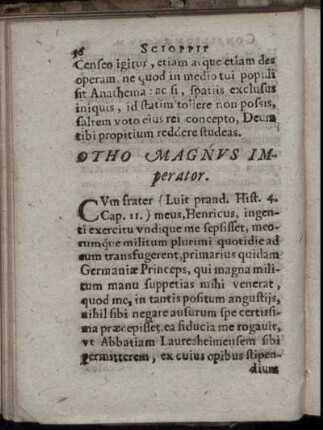 36 SCIOPPII
Censeo igitur, etiam atque etiam des
operam, ne quod in medio tui populi
sit Anathema: ac si, spatiis exclusus
iniquis, id statim tollere non possis,
saltem voto eius rei concepto, Deum
tibi propitium reddere studeas.
OTHO MAGNVS IM-
perator.
CVm frater (Luit prand. Hist. 4.
Cap. 11.) meus, Henricus, ingen-
ti exercitu vndique me sepsisset, meo-
rumque militum plurimi quotidie ad
eum transfugerent, primarius quidam
Germaniæ Princeps, qui magna mili-
tum manu suppetias mihi venerat,
quod me, in tantis positum angustijs,
nihil sibi negare ausurum spe certissi-
ma præcepisset, ea fiducia me rogauit,
vt Abbatiam Lauresheimensem sibi
permitterem, ex cuius opibus stipen-
dium